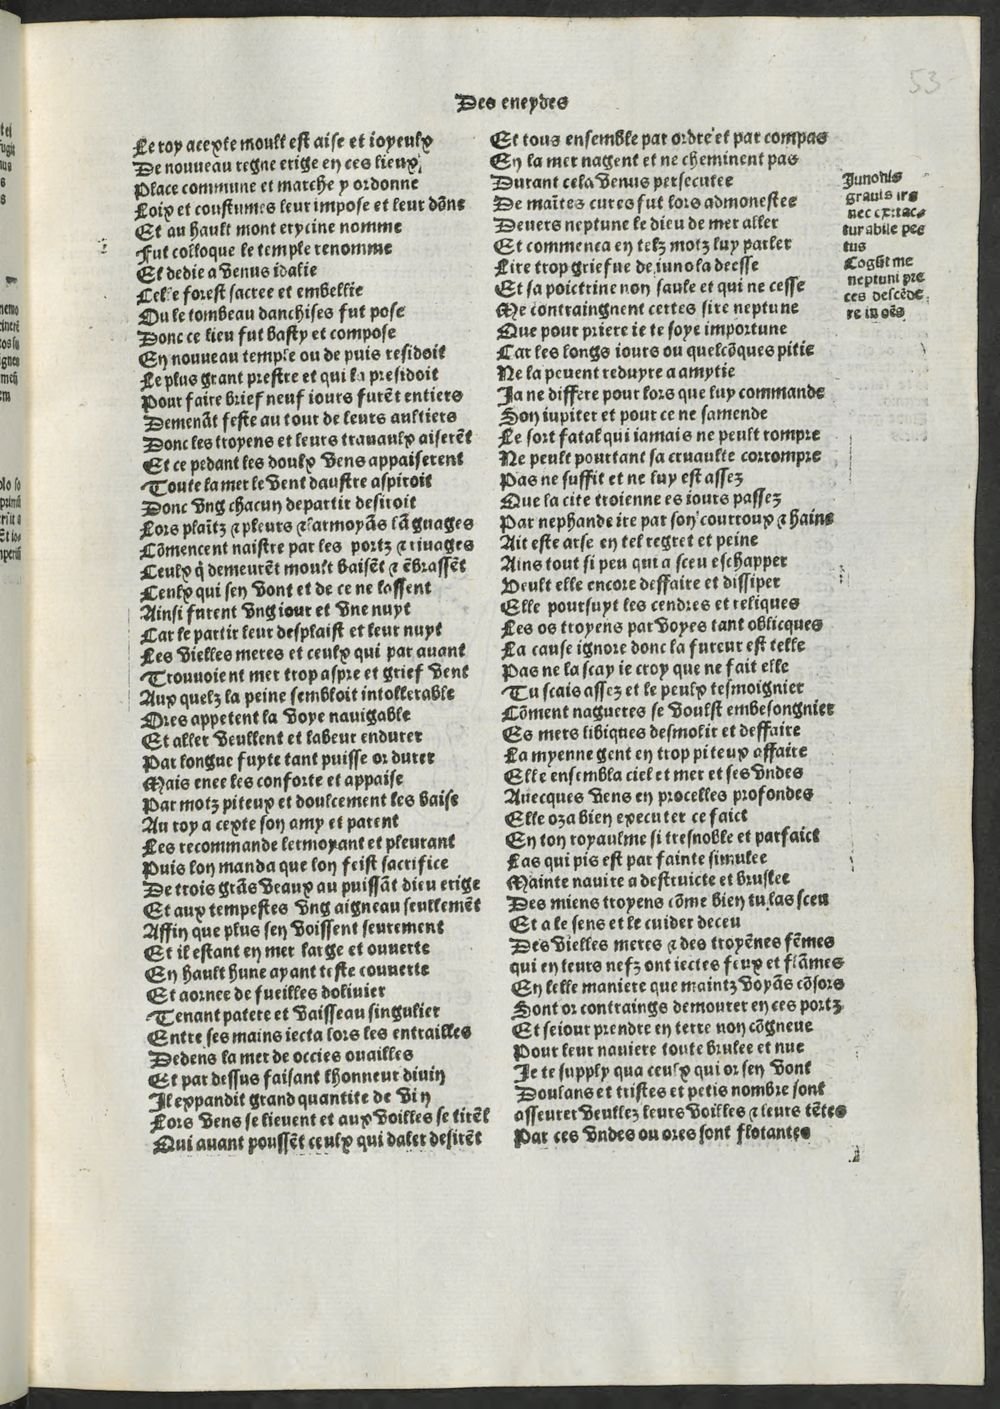 53
Des eneydes
Le roy acexte moult est aise et ioyeulx
De nouueau regne erige en ces lieux
Place commune et marche y ordonne
Loix et coustumes leur impose et leur dõne
Et au hault mont erycine nomme
Fut colloque le temple renomme
Et dedie a venus idalie
Celle forest sacree et embellie
Ou le tombeau danchises fut pose
Donc ce lieu fut basty et compose
En nouueau temple ou de puis residoit
Le plus grant prestre et qui la presidoit
Pour faire brief neuf iours furẽt entiers
Demenãt feste au tour de leurs aultiers
Donc les troyens et leurs trauaulx aiserẽt
Et ce pẽdant les doulx vens appaiserent
Toute la mer le vent daustre aspiroit
Donc vng chacun departir desiroit
Lors plaĩtz ⁊ pleurs ⁊ larmoyãs lãguages
Cõmencent naistre par les portz ⁊ riuages
Ceulx q̃ demeurẽt moult baisẽt ⁊ ẽbrassẽt
Ceulx qui sen vont et de ce ne lassent
Ainsi furent vng iour et vne nuyt
Car le partir leur desplaist et leur nuyt
Les vielles meres et ceulx qui par auant
Trouuoient mer trop aspre et grief vent
Aux quelz la peine sembloit intollerable
Ores appetent la voye nauigable
Et aller veullent et labeur endurer
Par longue fuyte tant puisse or durer
Mais enee les conforte et appaise
Par motz piteux et doulcement les baise
Au roy a cexte son amy et parent
Les recommande lermoyant et pleurant
Puis lon manda que lon feist sacrifice
De trois grãs veaux au puissãt dieu erige
Et aux tempestes vng aigneau seullemẽt
Affin que plus sen voissent seurement
Et il estant en mer large et ouuerte
En hault hune ayant teste couuerte
Et aornee de fueilles doliuier
Tenant patere et vaisseau singulier
Entre ses mains iecta lors les entrailles
Dedens la mer de occies ouailles
Et par dessus faisant lhonneur diuin
Il expandit grand quantite de vin
Lors vens se lieuent et aux voilles se tirẽt
Qui auant poussẽt ceulx qui daler desirẽt
Et tous ensemble par ordre et par compas
En la mer nagent et ne cheminent pas
Durant cela venus persecutee
De maĩtes cures fut lors admonestee
Deuers neptune le dieu de mer aller
Et commenca en telz motz luy parler
Lire trop griefue de iuno la deesse
Et sa poictrine non saule et qui ne cesse
Me contraingnent certes sire neptune
Que pour priere ie te soye importune
Car les longs iours ou quelcõques pitie
Ne la peuent reduyre a amytie
Ja ne differe pour lors que luy commande
Son iupiter et pour ce ne samende
Le sort fatal qui iamais ne peult rompre
Ne peult pourtant sa cruaulte corrompre
Pas ne suffit et ne luy est assez
Que la cite troienne es iours passez
Par nephande ire par son courroux ⁊ haine
Ait este arse en tel regret et peine
Ains tout si peu qui a sceu eschapper
Veult elle encore deffaire et dissiper
Elle poursuyt les cendres et reliques
Les os troyens par voyes tant oblicques
La cause ignore donc la fureur est telle
Pas ne la scay ie croy que ne fait elle
Tu scais assez et le peulx tesmoignier
Cõment nagueres se voulst embesongnier
Es mers libiques desmolir et deffaire
La myenne gent en trop piteux affaire
Elle ensembla ciel et mer et ses vndes
Auecques vens en procelles profondes
Elle oza bien executer ce faict
En ton royaulme si tresnoble et parfaict
Las qui pis est par fainte simulee
Mainte nauire a destruicte et bruslee
Des miens troyens cõme bien tu las sceu
Et a le sens et le cuider deceu
Des vielles meres ⁊ des troyẽnes fẽmes
qui en leurs nefz ont iectes feux et flãmes
En telle maniere que maintz voyãs cõsors
Sont or contraings demourer en ces portz
Et seiour prendre en terre non cõgneue
Pour leur nauiere toute brulee et nue
Je te supply qua ceulx qui or sen vont
Doulans et tristes et petis nombre sont
asseurer veullez leurs voilles ⁊ leurs tẽtes
Par ces vndes ou ores sont flotantes
Junonis
grauis ira
nec exatac
turabile pec
tus
Cogũt me
neptuni pre
ces descẽde
re in oẽs